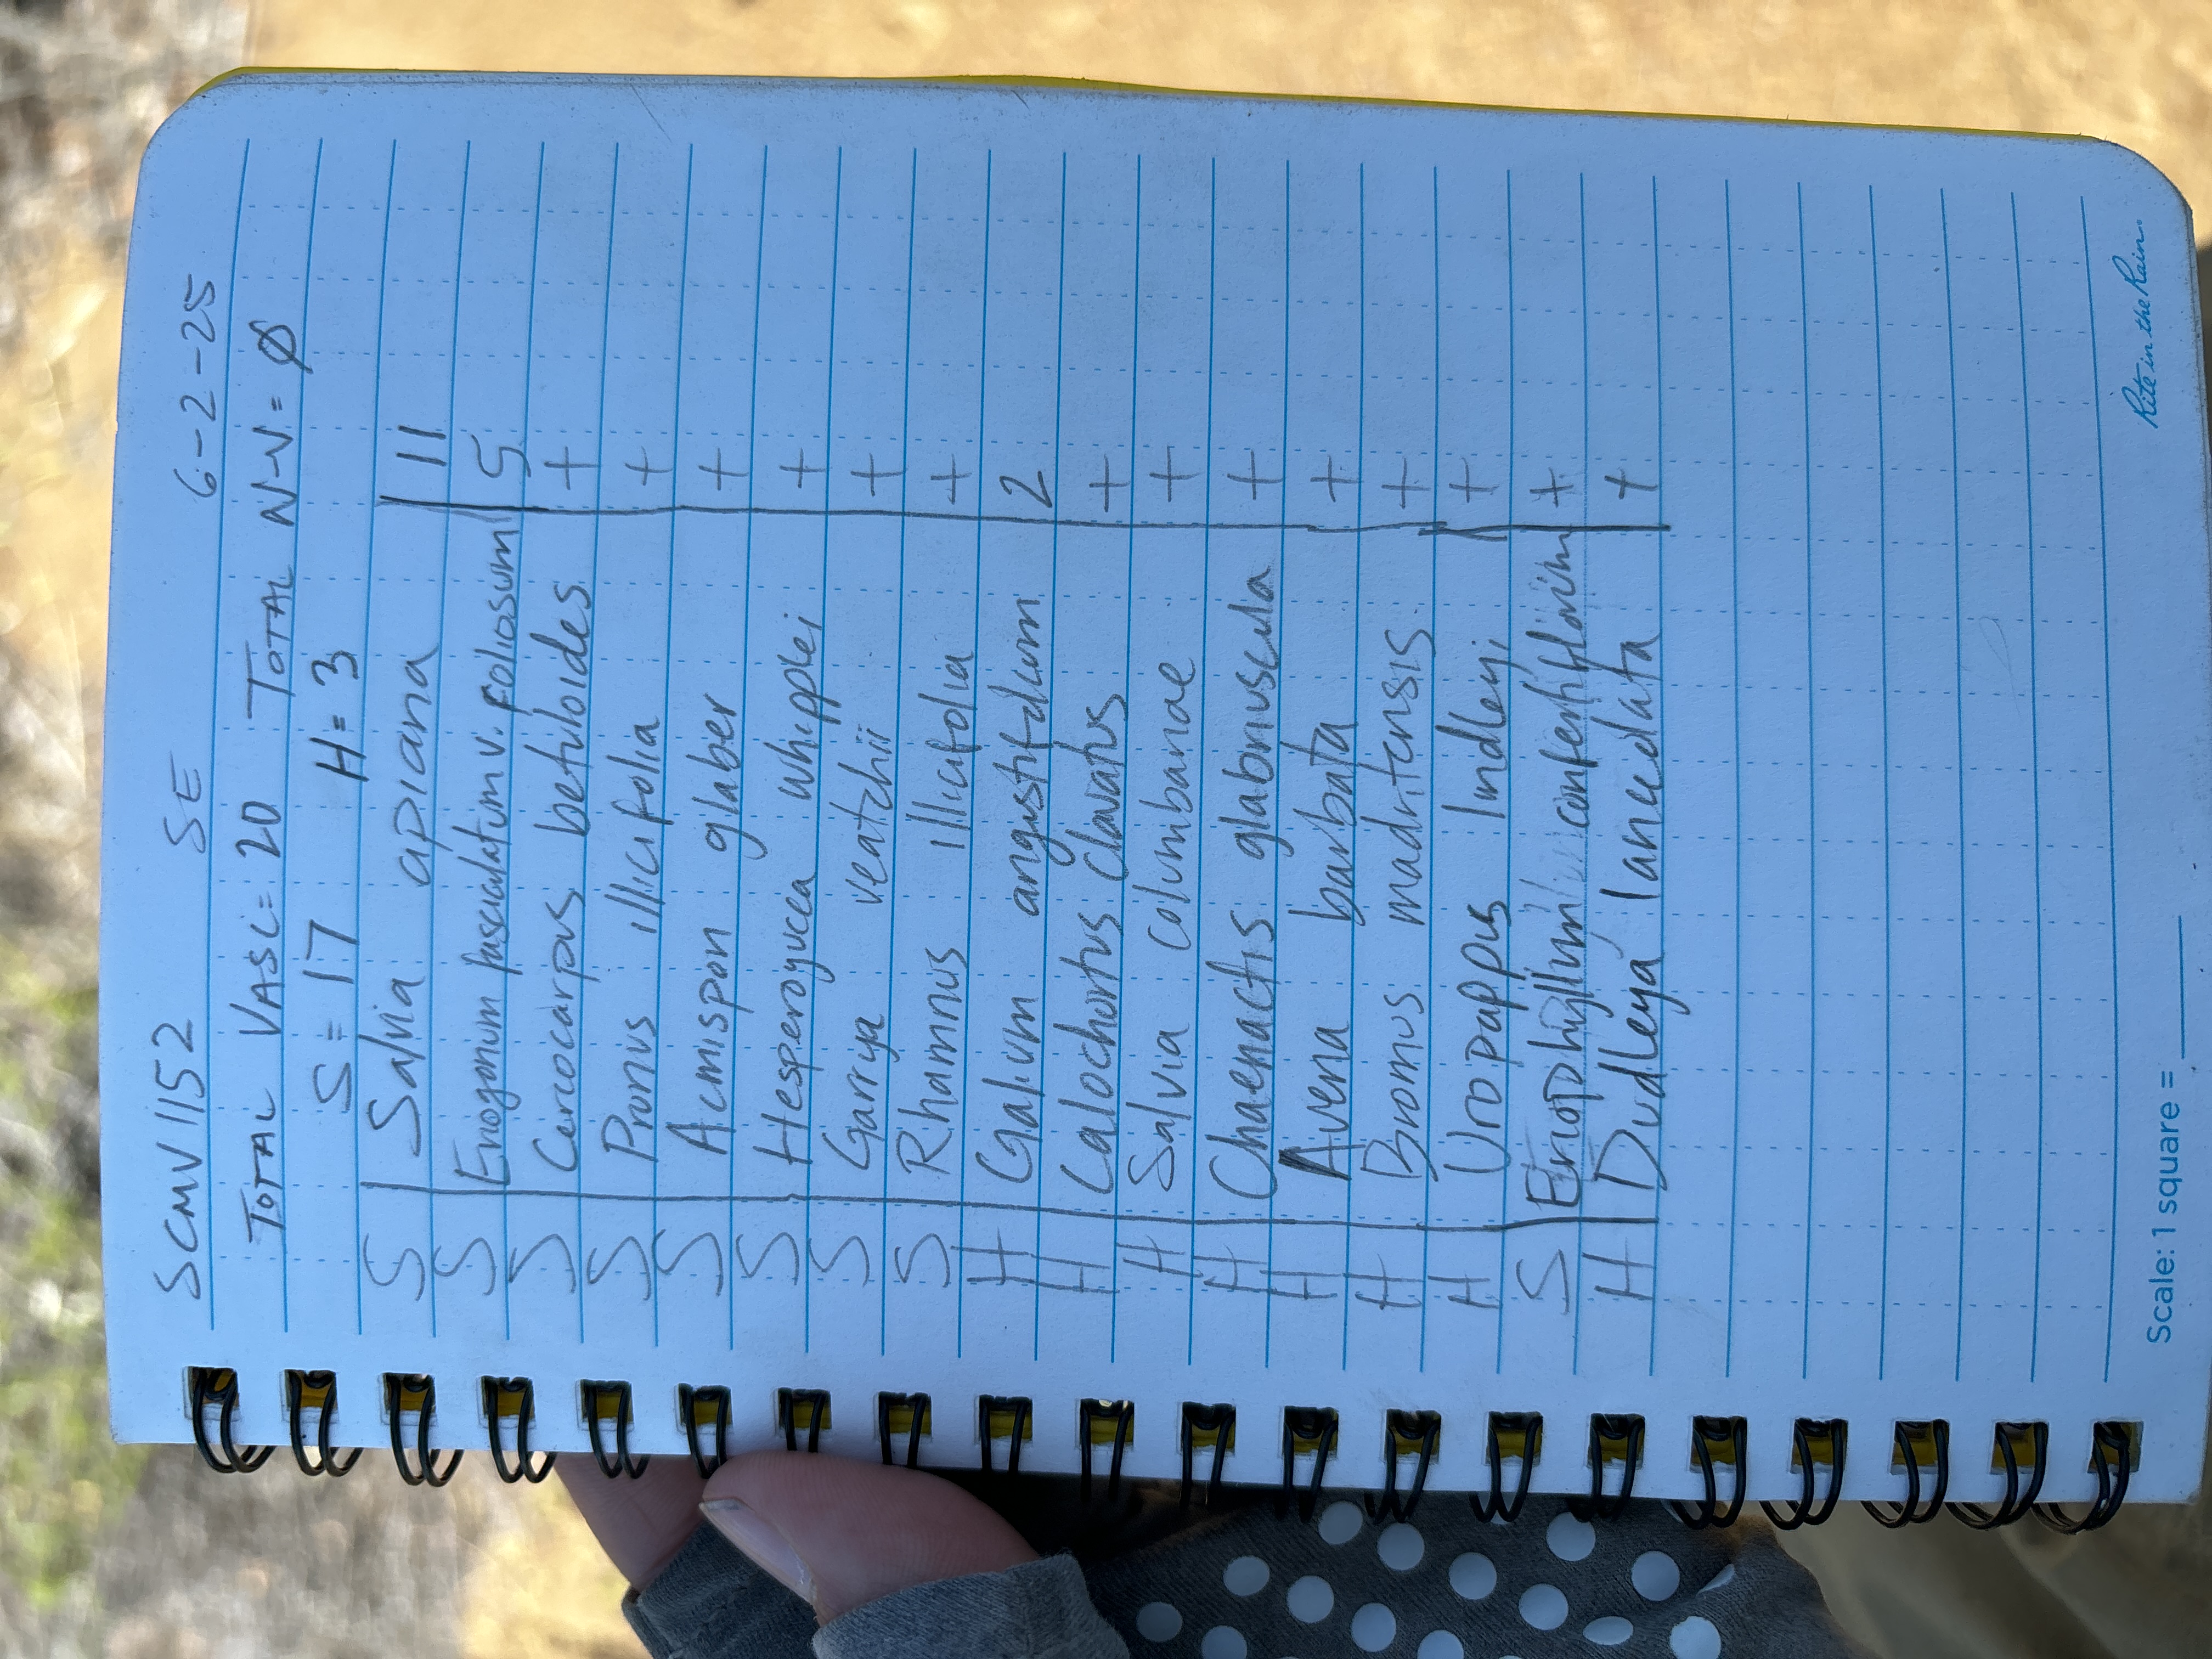 SCMV1152 SE 6-2-25
TOTAL VASC= 20 TOTAL N-V= Ø
S= 17 H= 3
S Salvia apiana 11
S Eriogonum fasciculatum v. foliosum 5
S Cercocarpus betuloides +
S Prunus illicifolia +
S Acmispon glaber +
S Hesperoyucca whipplei +
S Garrya veatchii +
S Rhamnus illicifolia +
H Galium angustifolium 2
H Calochortus clavatus +
H Salvia columbariae +
H Chaenactis glabriuscula +
H Avena barbata +
H Bromus madritensis +
H Uropappus lindleyi +
S Eriophyllum confertiflorum +
H Dudleya lanceolata +
Scale: 1 square =
Rite in the Rain